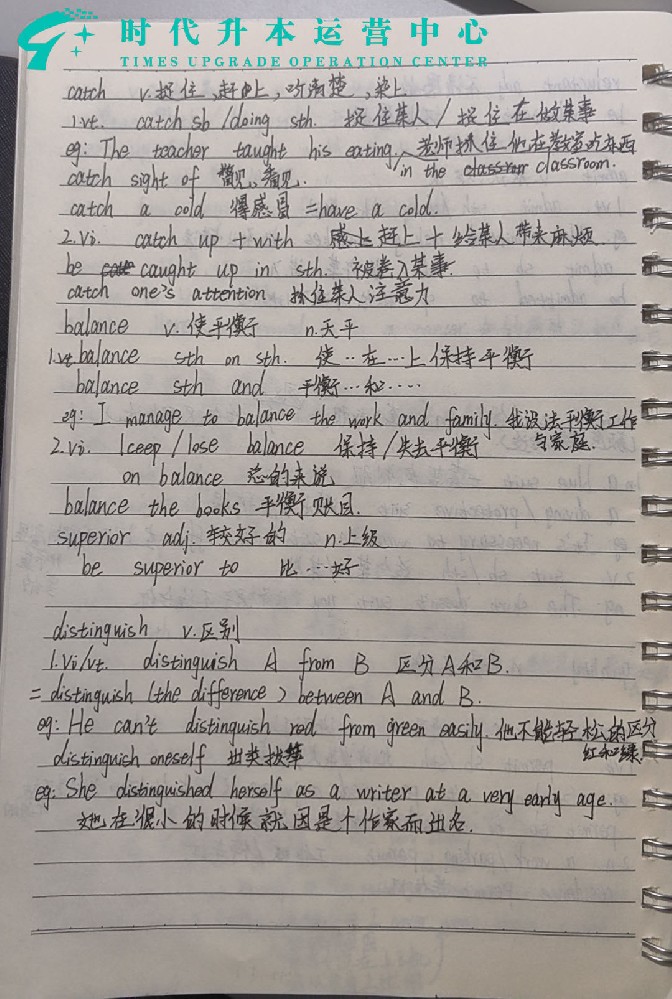 时代升本运营中心
TIMES UPGRADE OPERATION CENTER
catch v.捉住,赶上,听清楚,染上
1.vt. catch sb/doing sth. 捉住某人/捉住在做某事
eg: The teacher taught his eating in the classroom. 老师抓住他在教室吃东西
catch sight of 瞥见,看见.
catch a cold 得感冒 =have a cold.
2.Vi. catch up +with 赶上+给某人带来麻烦
be caught up in sth. 被卷入某事.
catch one's attention 抓住某人注意力
balance v.使平衡 n.天平
1.vt balance sth on sth. 使…在…上保持平衡
balance sth and 平衡…和….
eg: I manage to balance the work and family. 我设法平衡工作与家庭.
2.Vi. keep/lose balance 保持/失去平衡
on balance 总的来说
balance the books 平衡账目.
superior adj. 较好的 n.上级
be superior to 比…好
distinguish v.区别
1.Vi/vt. distinguish A from B 区分A和B.
= distinguish (the difference) between A and B.
eg: He can't distinguish red from green easily. 他不能轻松的区分红和绿.
distinguish oneself 出类拔萃
eg: She distinguished herself as a writer at a very early age.
她在很小的时候就因是个作家而出名.